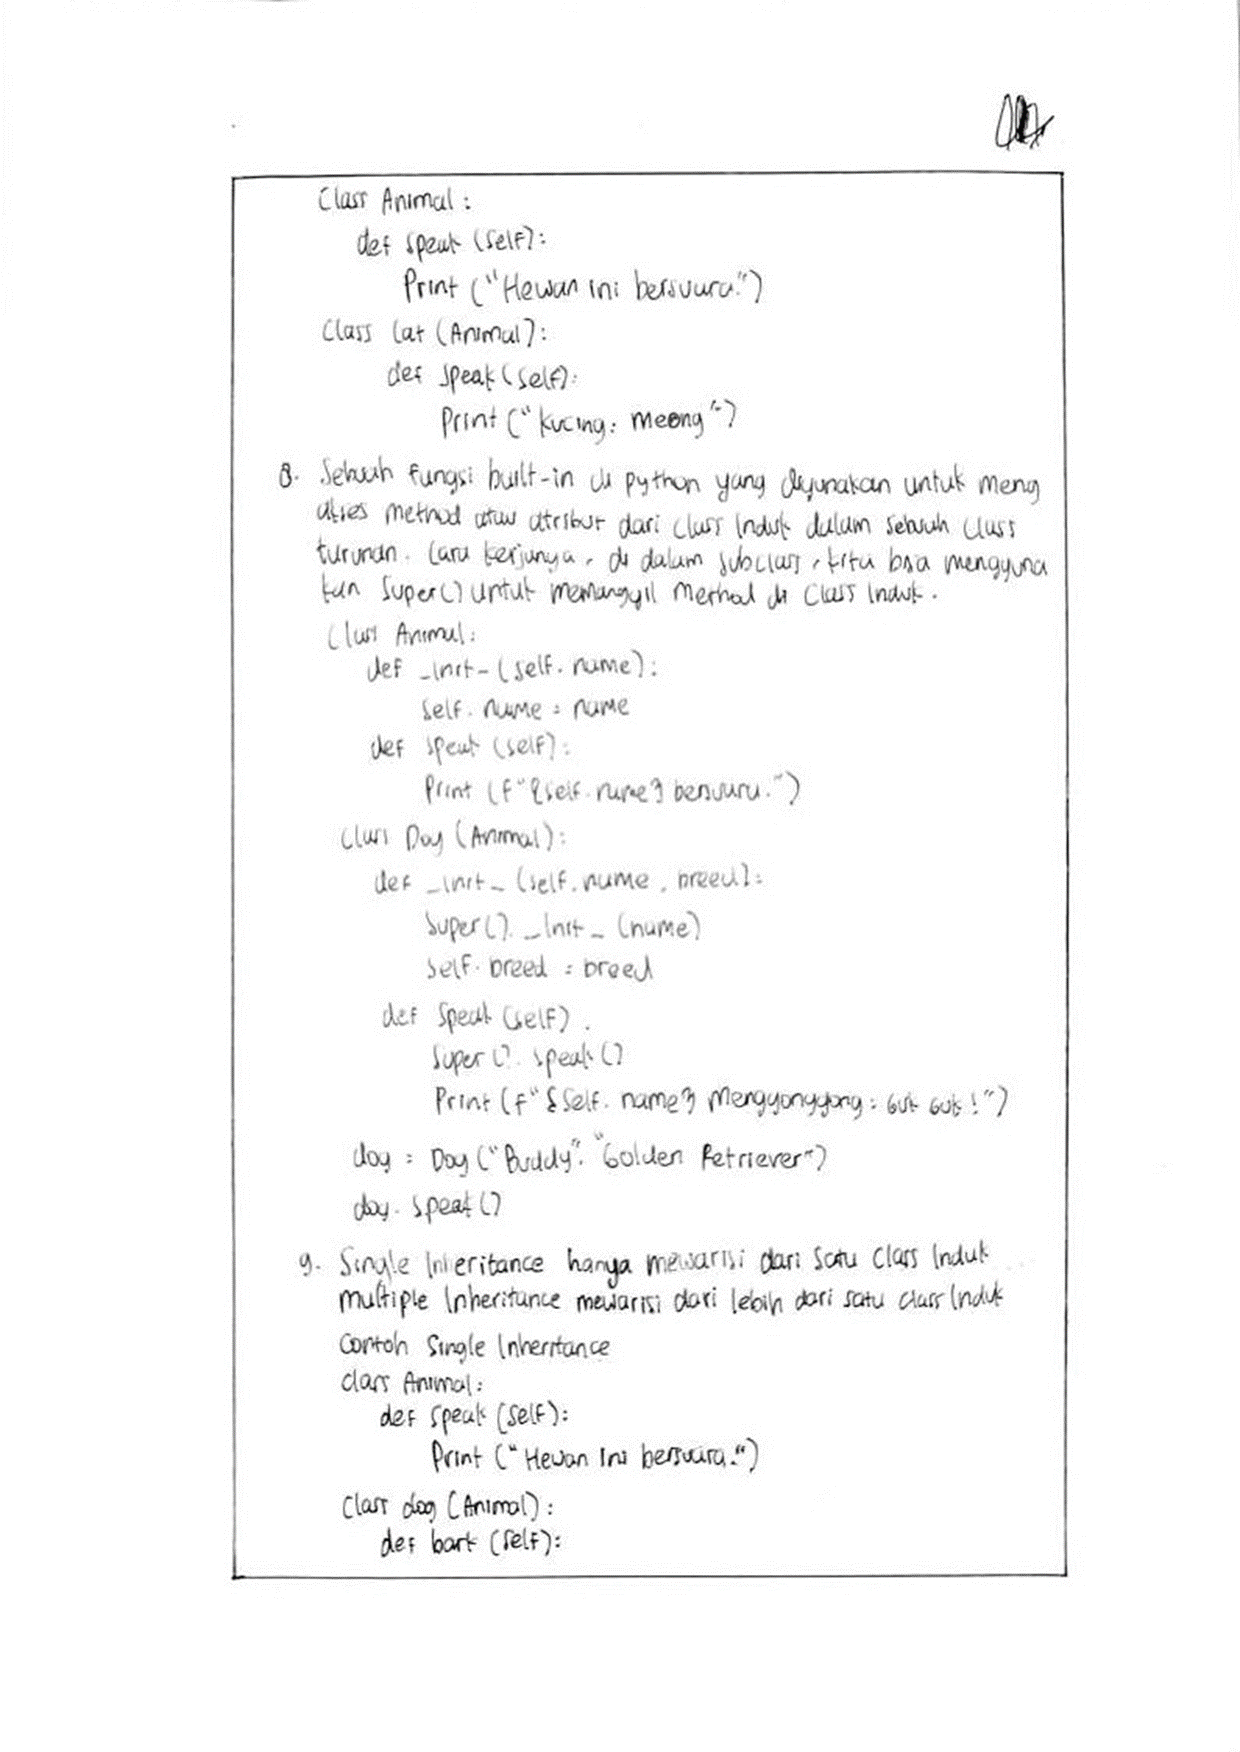 Class Animal :
def speak (self):
Print ("Hewan ini bersuara.")
Class Cat (Animal):
def speak (self):
Print ("Kucing: meong")
8. Sebuah fungsi built-in di python yang digunakan untuk meng
akses method atau atribut dari class Induk dalam sebuah class
turunan. Cara kerjanya, di dalam subclass, kita bisa mengguna
kan Super() untuk memanggil method di Class Induk.
Class Animal:
def _init_ (self. name):
self. name = name
def speak (self):
Print (f"{self.name} bersuara.")
Class Dog (Animal):
def _init_ (self. name, breed):
Super(). _Init_ (name)
self. breed = breed
def speak (self).
Super (). speak ()
Print (f"{self. name} Menggonggong: Guk Guk!")
dog = Dog ("Buddy". "Golden Retriever")
dog. speak ()
9. Single Inheritance hanya mewarisi dari Satu Class Induk
multiple Inheritance mewarisi dari lebih dari satu class Induk
Contoh Single Inheritance
class Animal:
def speak (self):
Print ("Hewan Ini bersuara.")
Class dog (Animal):
def bark (self):